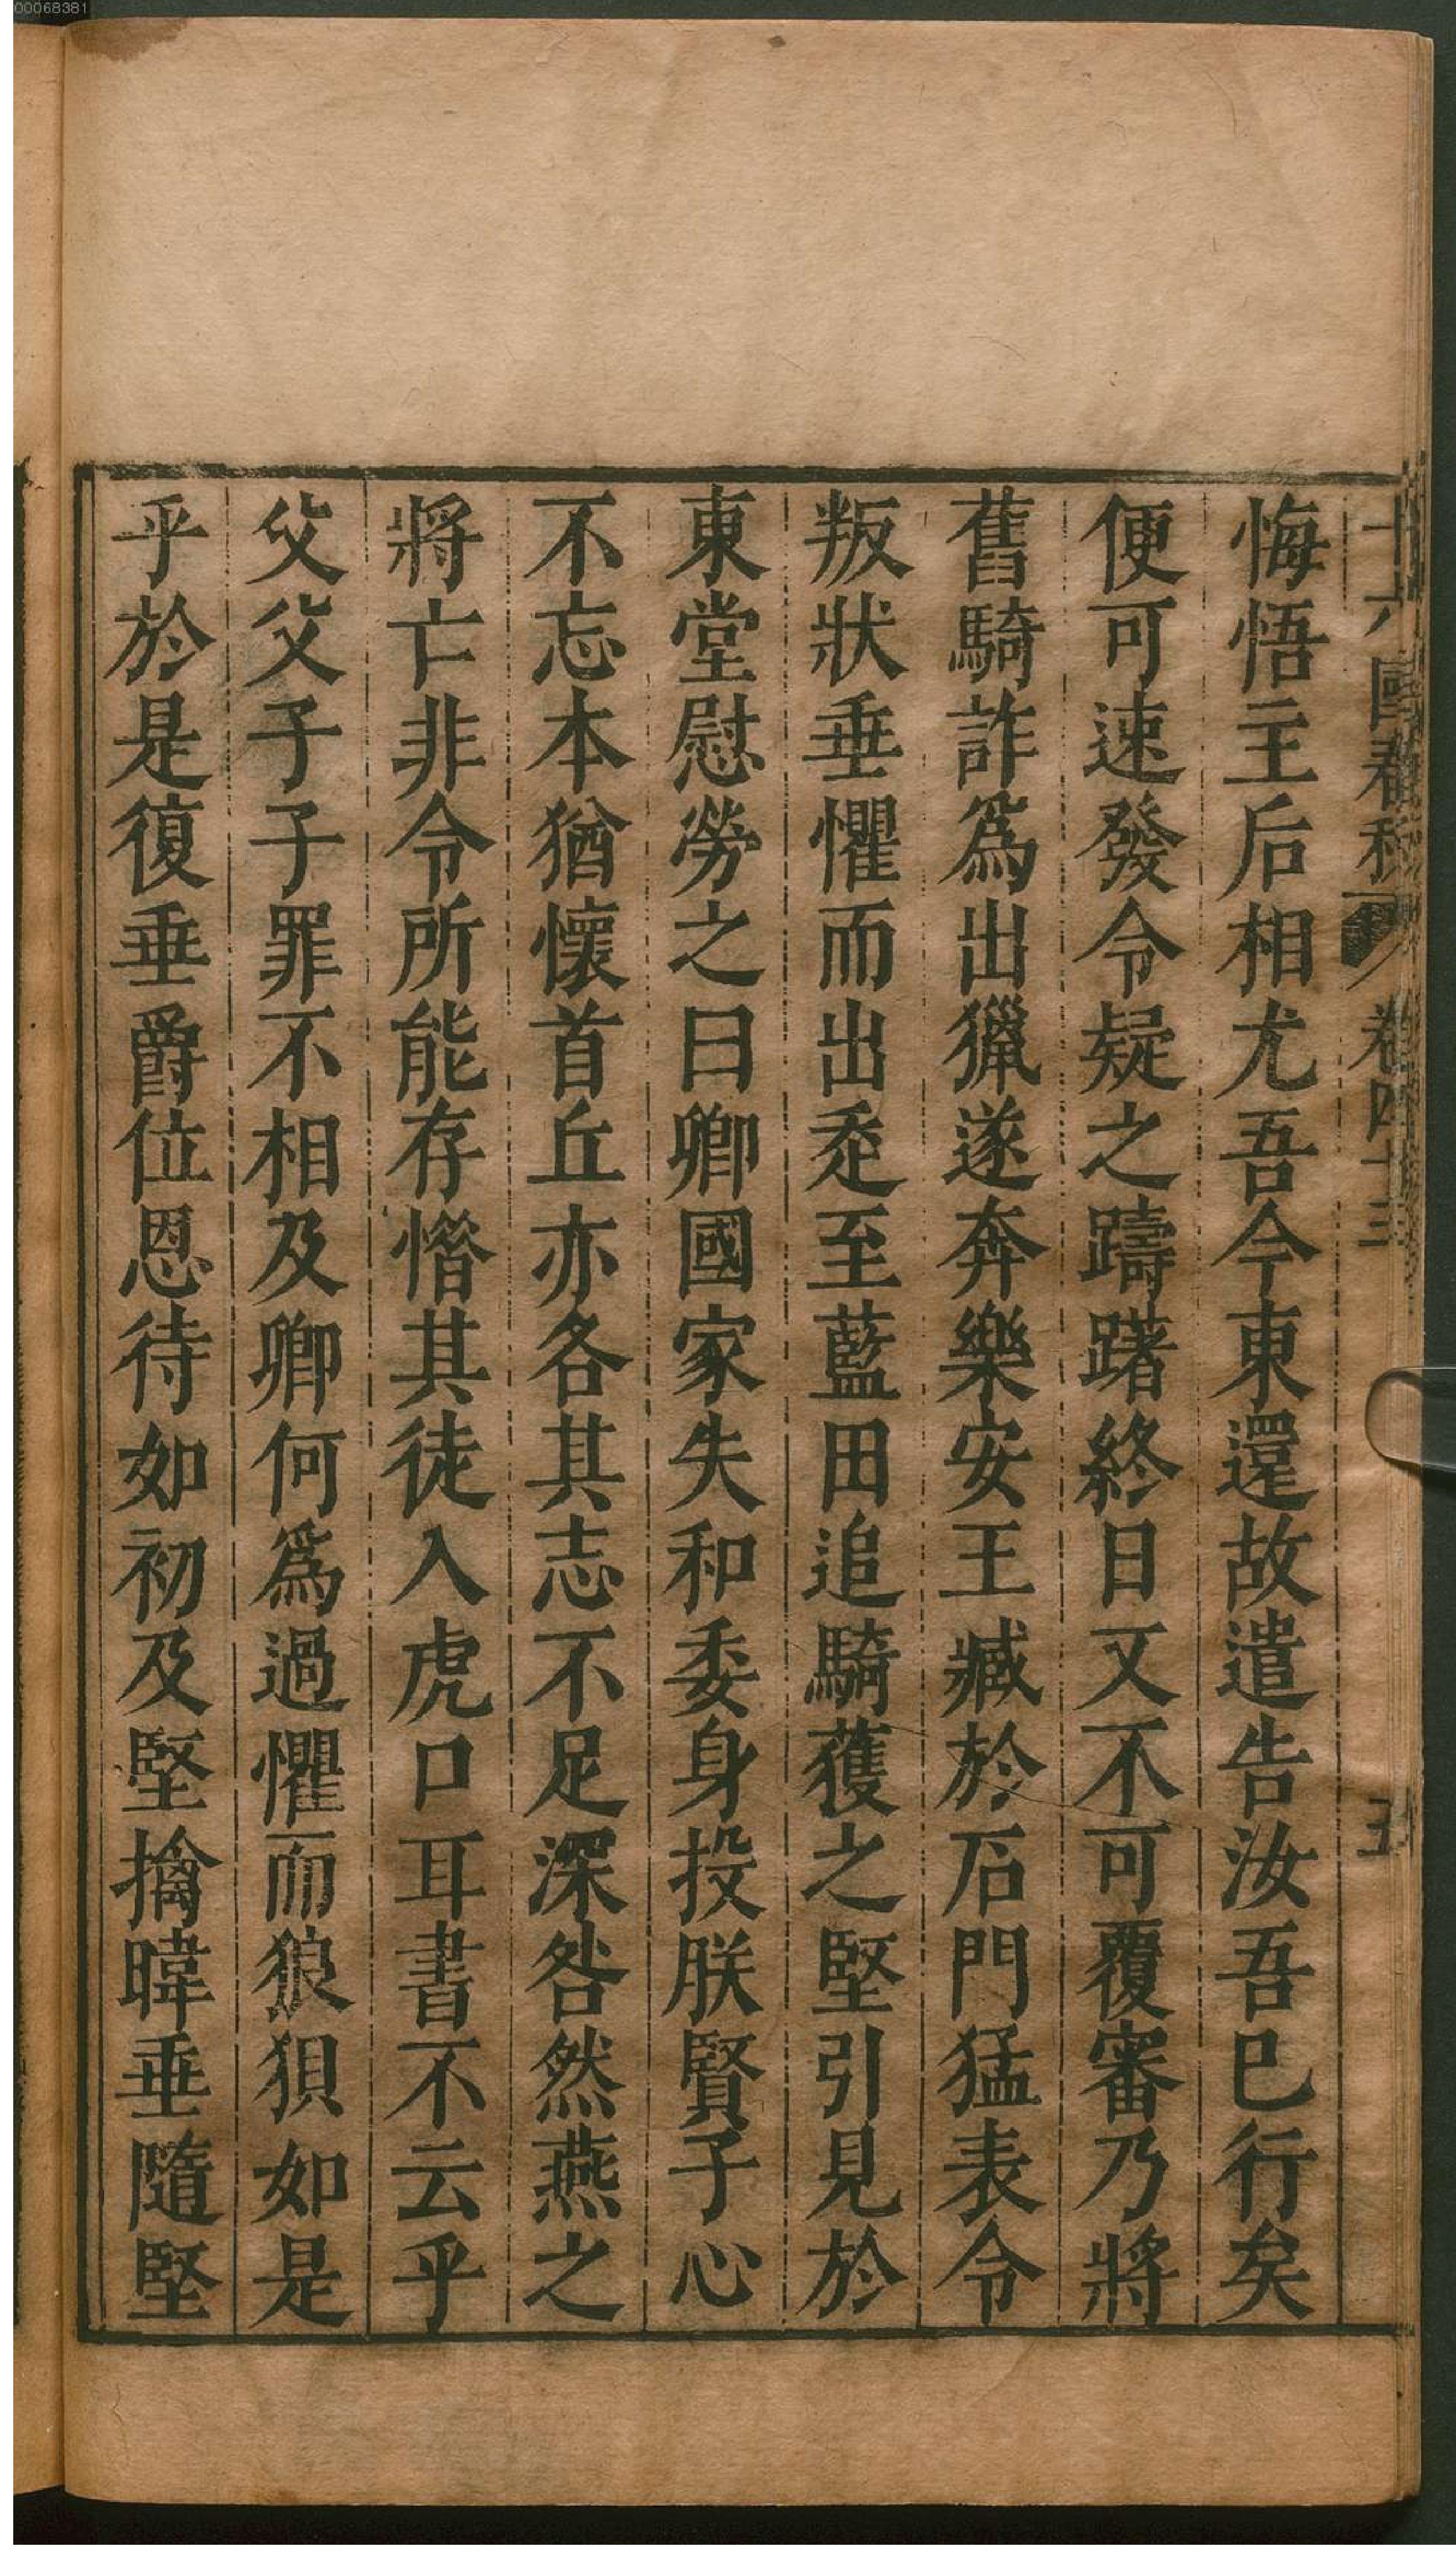 00068381
十六國春秋 卷四十三 五
悔悟主后相尤吾今東還故遣告汝吾已行矣
便可速發令疑之躊躇終日又不可覆審乃將
舊騎詐爲出獵遂奔樂安王臧於石門猛表令
叛狀垂懼而出走至藍田追騎獲之堅引見於
東堂慰勞之曰卿國家失和委身投朕賢子心
不忘本猶懷首丘亦各其志不足深咎然燕之
將亡非令所能存惜其徒入虎口耳書不云乎
父父子子罪不相及卿何爲過懼而狼狽如是
乎於是復垂爵位恩待如初及堅擒暐垂隨堅